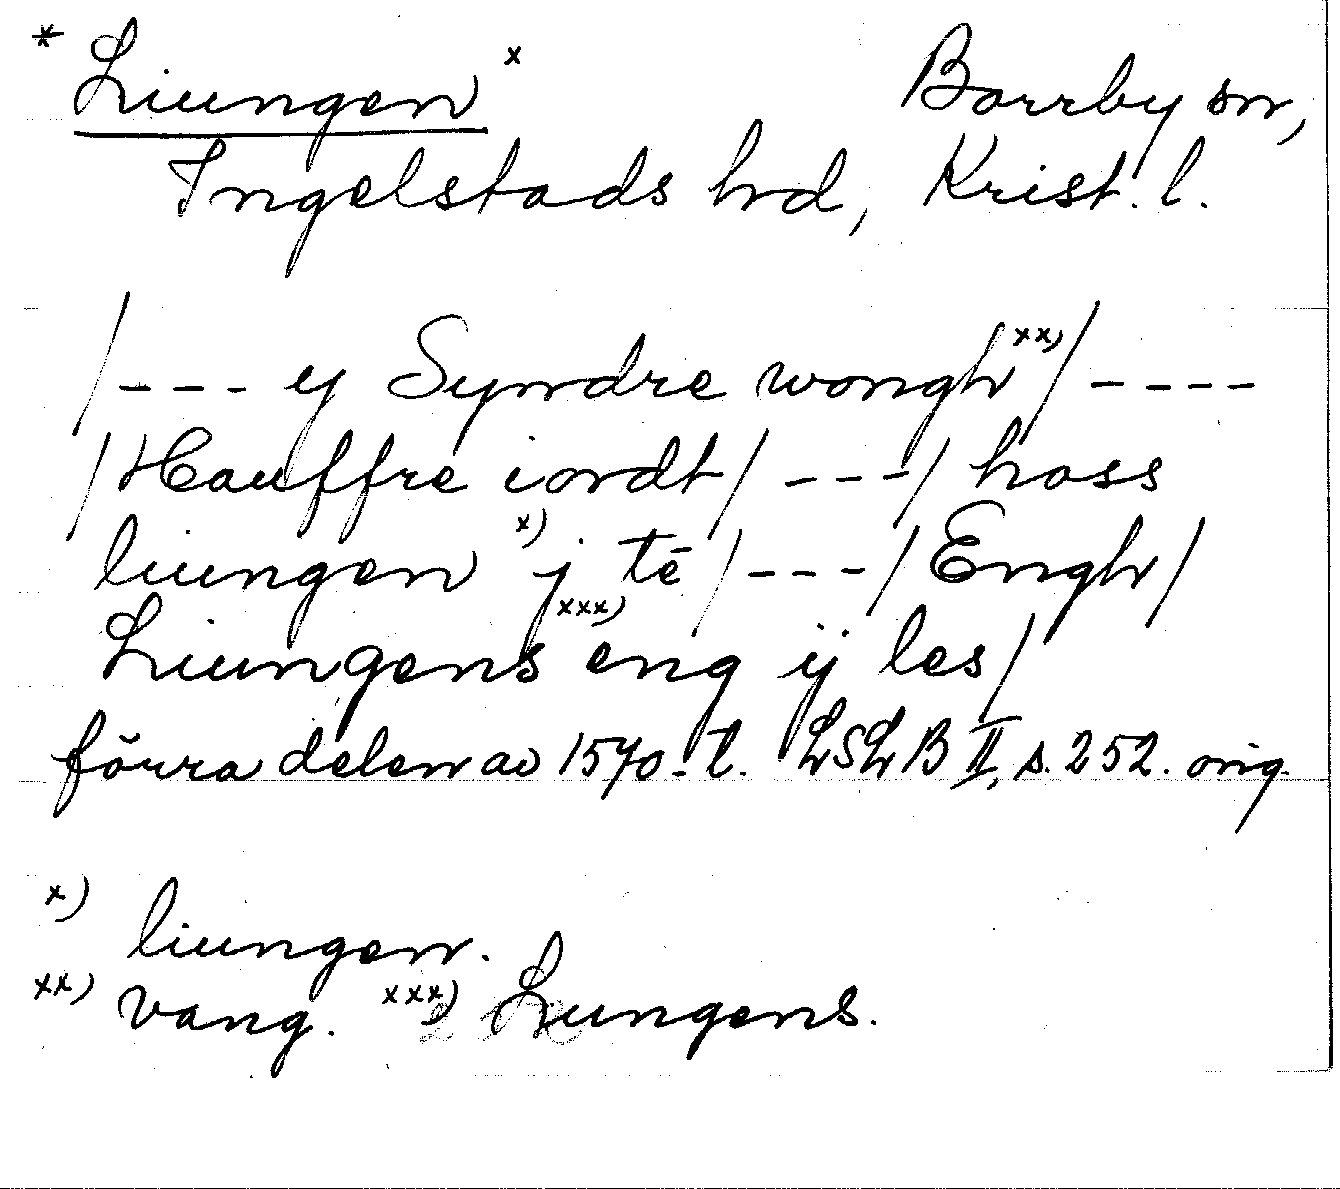 * Liungen x Borrby sn,
Ingelstads hd, Krist. l.
/--- ij Syndre wongh xx)/----
/Hauffre iordt/ ---/ hoss
liungen x) j tē /---/ Engh/
Liungens xxx) eng ij les/
förra delen av 1570-t. LSLB II, s. 252. orig.
x) liungen.
xx) vang. xxx) Lungens.